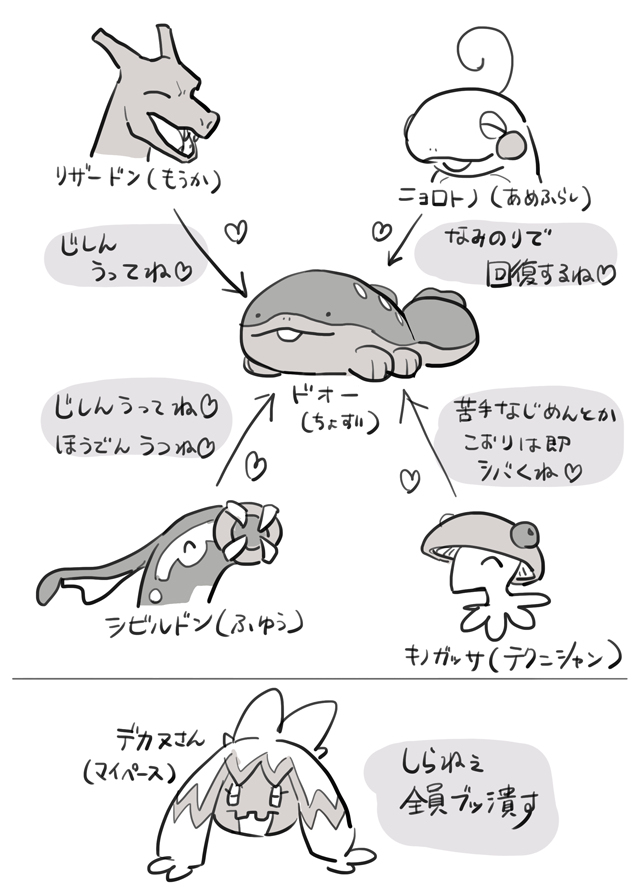 リザードン(もうか)
ニョロトノ(あめふらし)
じしん
うってね♡
なみのりで
回復するね♡
ドオー
(ちょすい)
じしんうってね♡
ほうでんうつね♡
苦手なじめんとか
こおりは即
シバくね♡
シビルドン(ふゆう)
キノガッサ(テクニシャン)
デカヌさん
(マイペース)
しらねェ
全員ブッ潰す